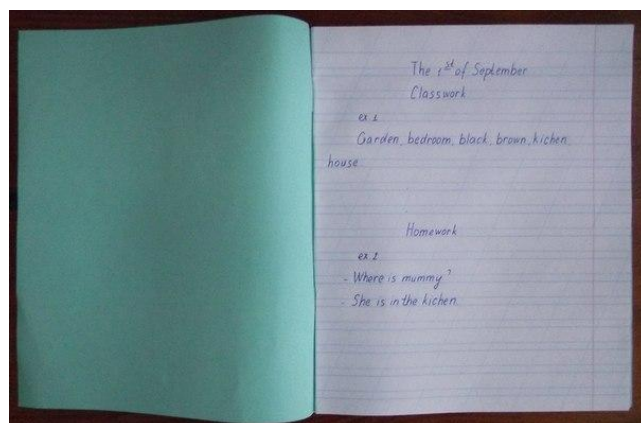 The 1st of September
Classwork
ex 1
Garden, bedroom, black, brown, kichen,
house.
Homework
ex 2
- Where is mummy?
- She is in the kichen.